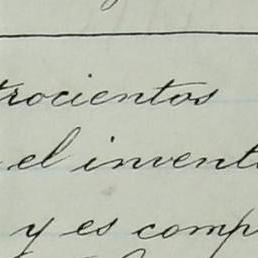 trocientos
el invent
y es comp